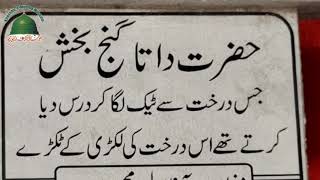 حضرت داتا گنج بخش
جس درخت سے ٹیک لگا کر درس دیا
کرتے تھے اس درخت کی لکڑی کے ٹکڑے